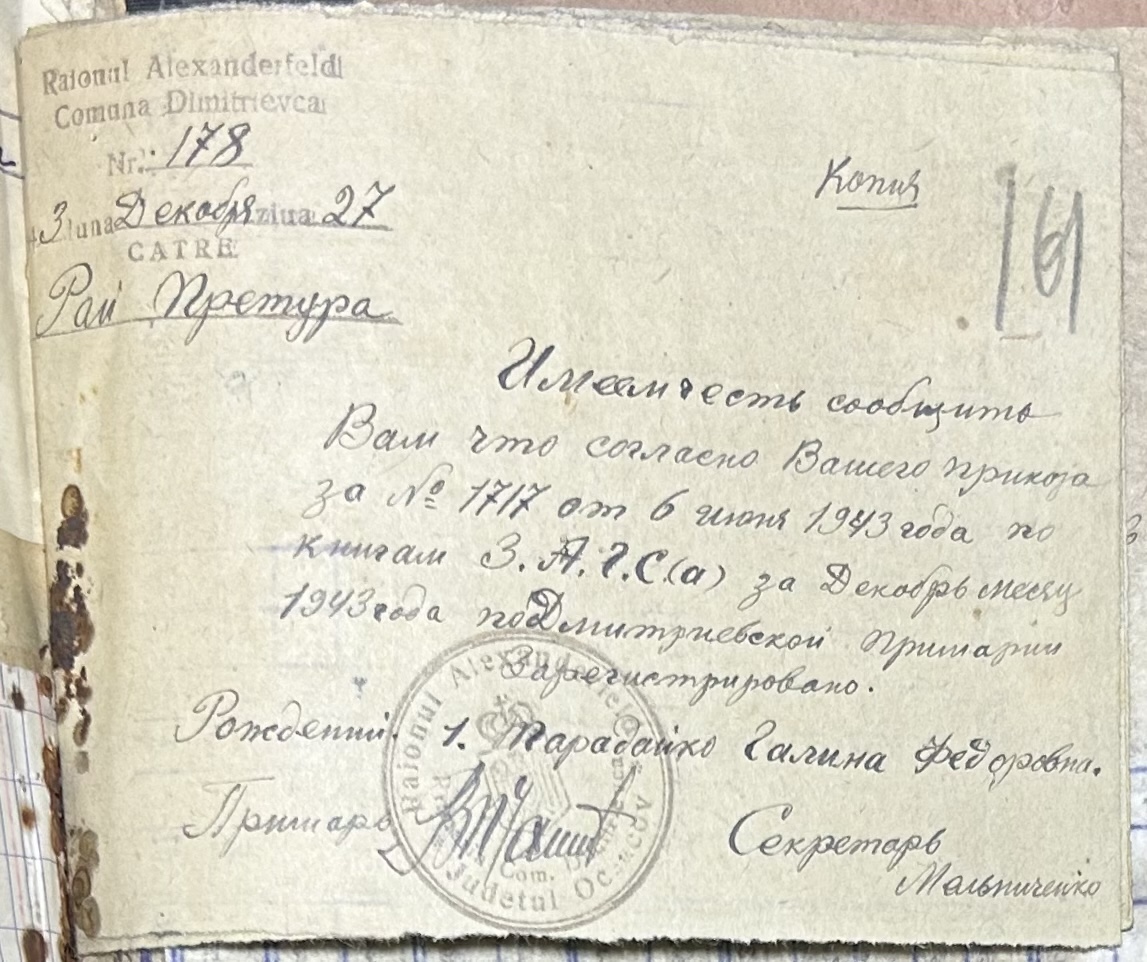 Raionul Alexanderfeld
Comuna Dimitrievca
Nr. 178
3 luna Декабря ziua 27
CATRE
Рай Претура
Копия
161
Имеем честь сообщить
Вам что согласно Вашего приказа
за № 1717 от 6 июня 1943 года по
книгам З.А.Г.С.(а) за Декабрь месяц
1943 года по Дмитриевской Примарии
Зарегистрировано.
Рождений. 1. Тарадайко Галина Федоровна.
Примарь
Секретарь
Мельниченко
Raionul Alexanderfeld
Com. Dimitrievca
Judetul Oceacov